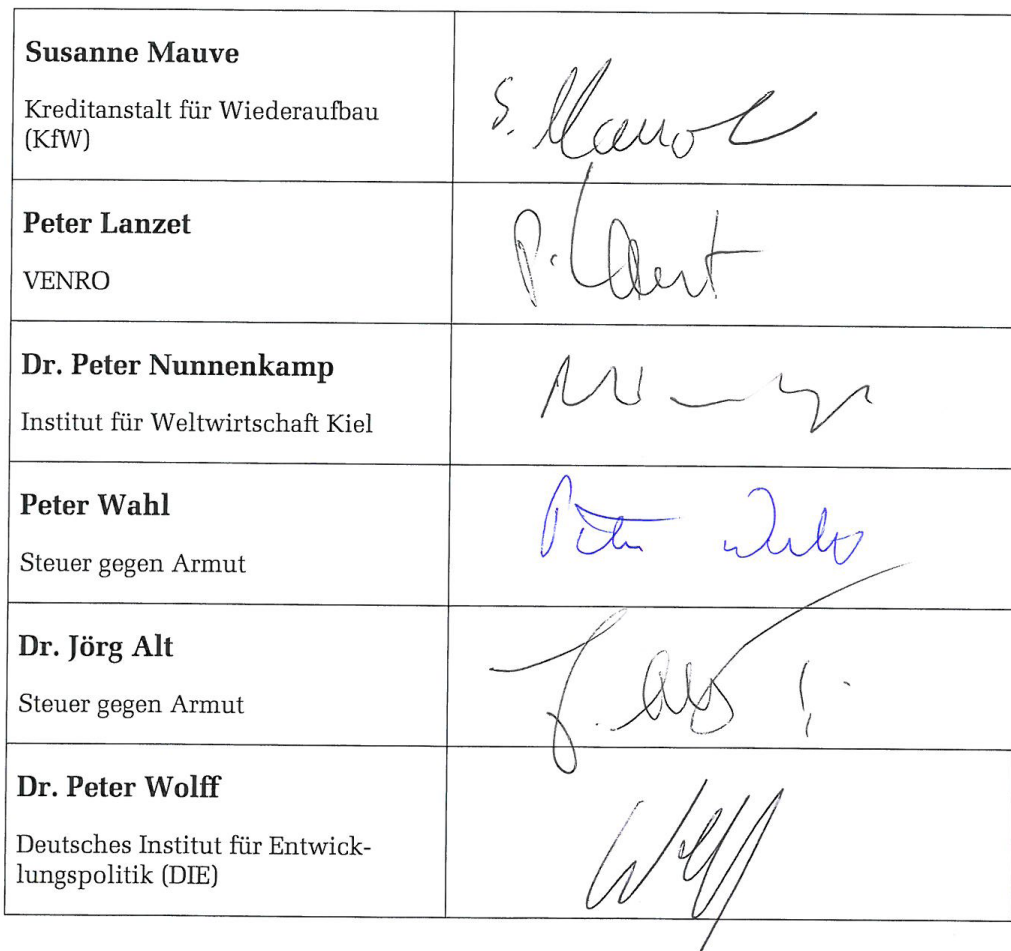 Susanne Mauve
Kreditanstalt für Wiederaufbau
(KfW)
S. Mauve
Peter Lanzet
VENRO
P. Lanzet
Dr. Peter Nunnenkamp
Institut für Weltwirtschaft Kiel
Peter Wahl
Steuer gegen Armut
Peter Wahl
Dr. Jörg Alt
Steuer gegen Armut
J. Alt
Dr. Peter Wolff
Deutsches Institut für Entwick-
lungspolitik (DIE)
Wolff